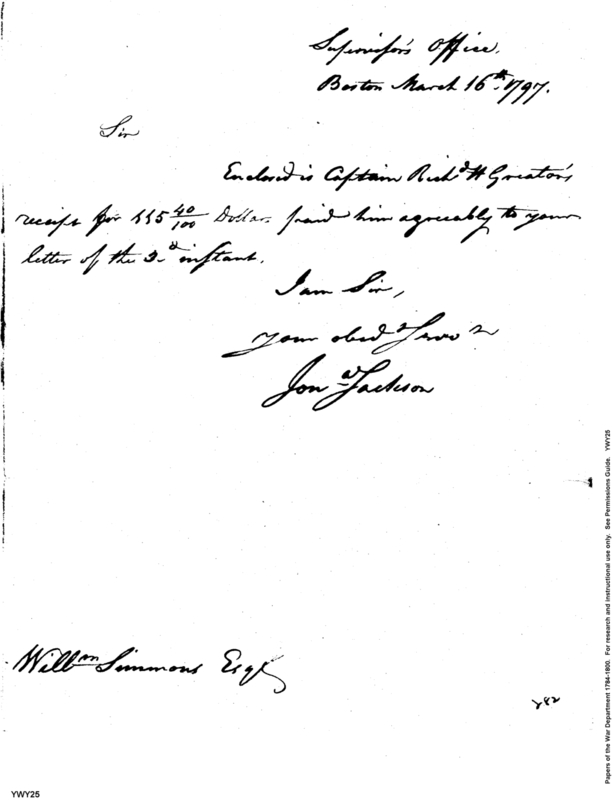 Supervisor's Office.
Boston March 16th. 1797.
Sir
Enclosed is Captain Richd H Greaton's
receipt for 40/100 Dollars paid him agreeably to your
letter of the 3d instant.
I am Sir,
your obedt
Jona Jackson
Willm Simmons Esqr
282
Papers of the War Department 1784-1800. For research and instructional use only. See Permissions Guide. YWY25
YWY25